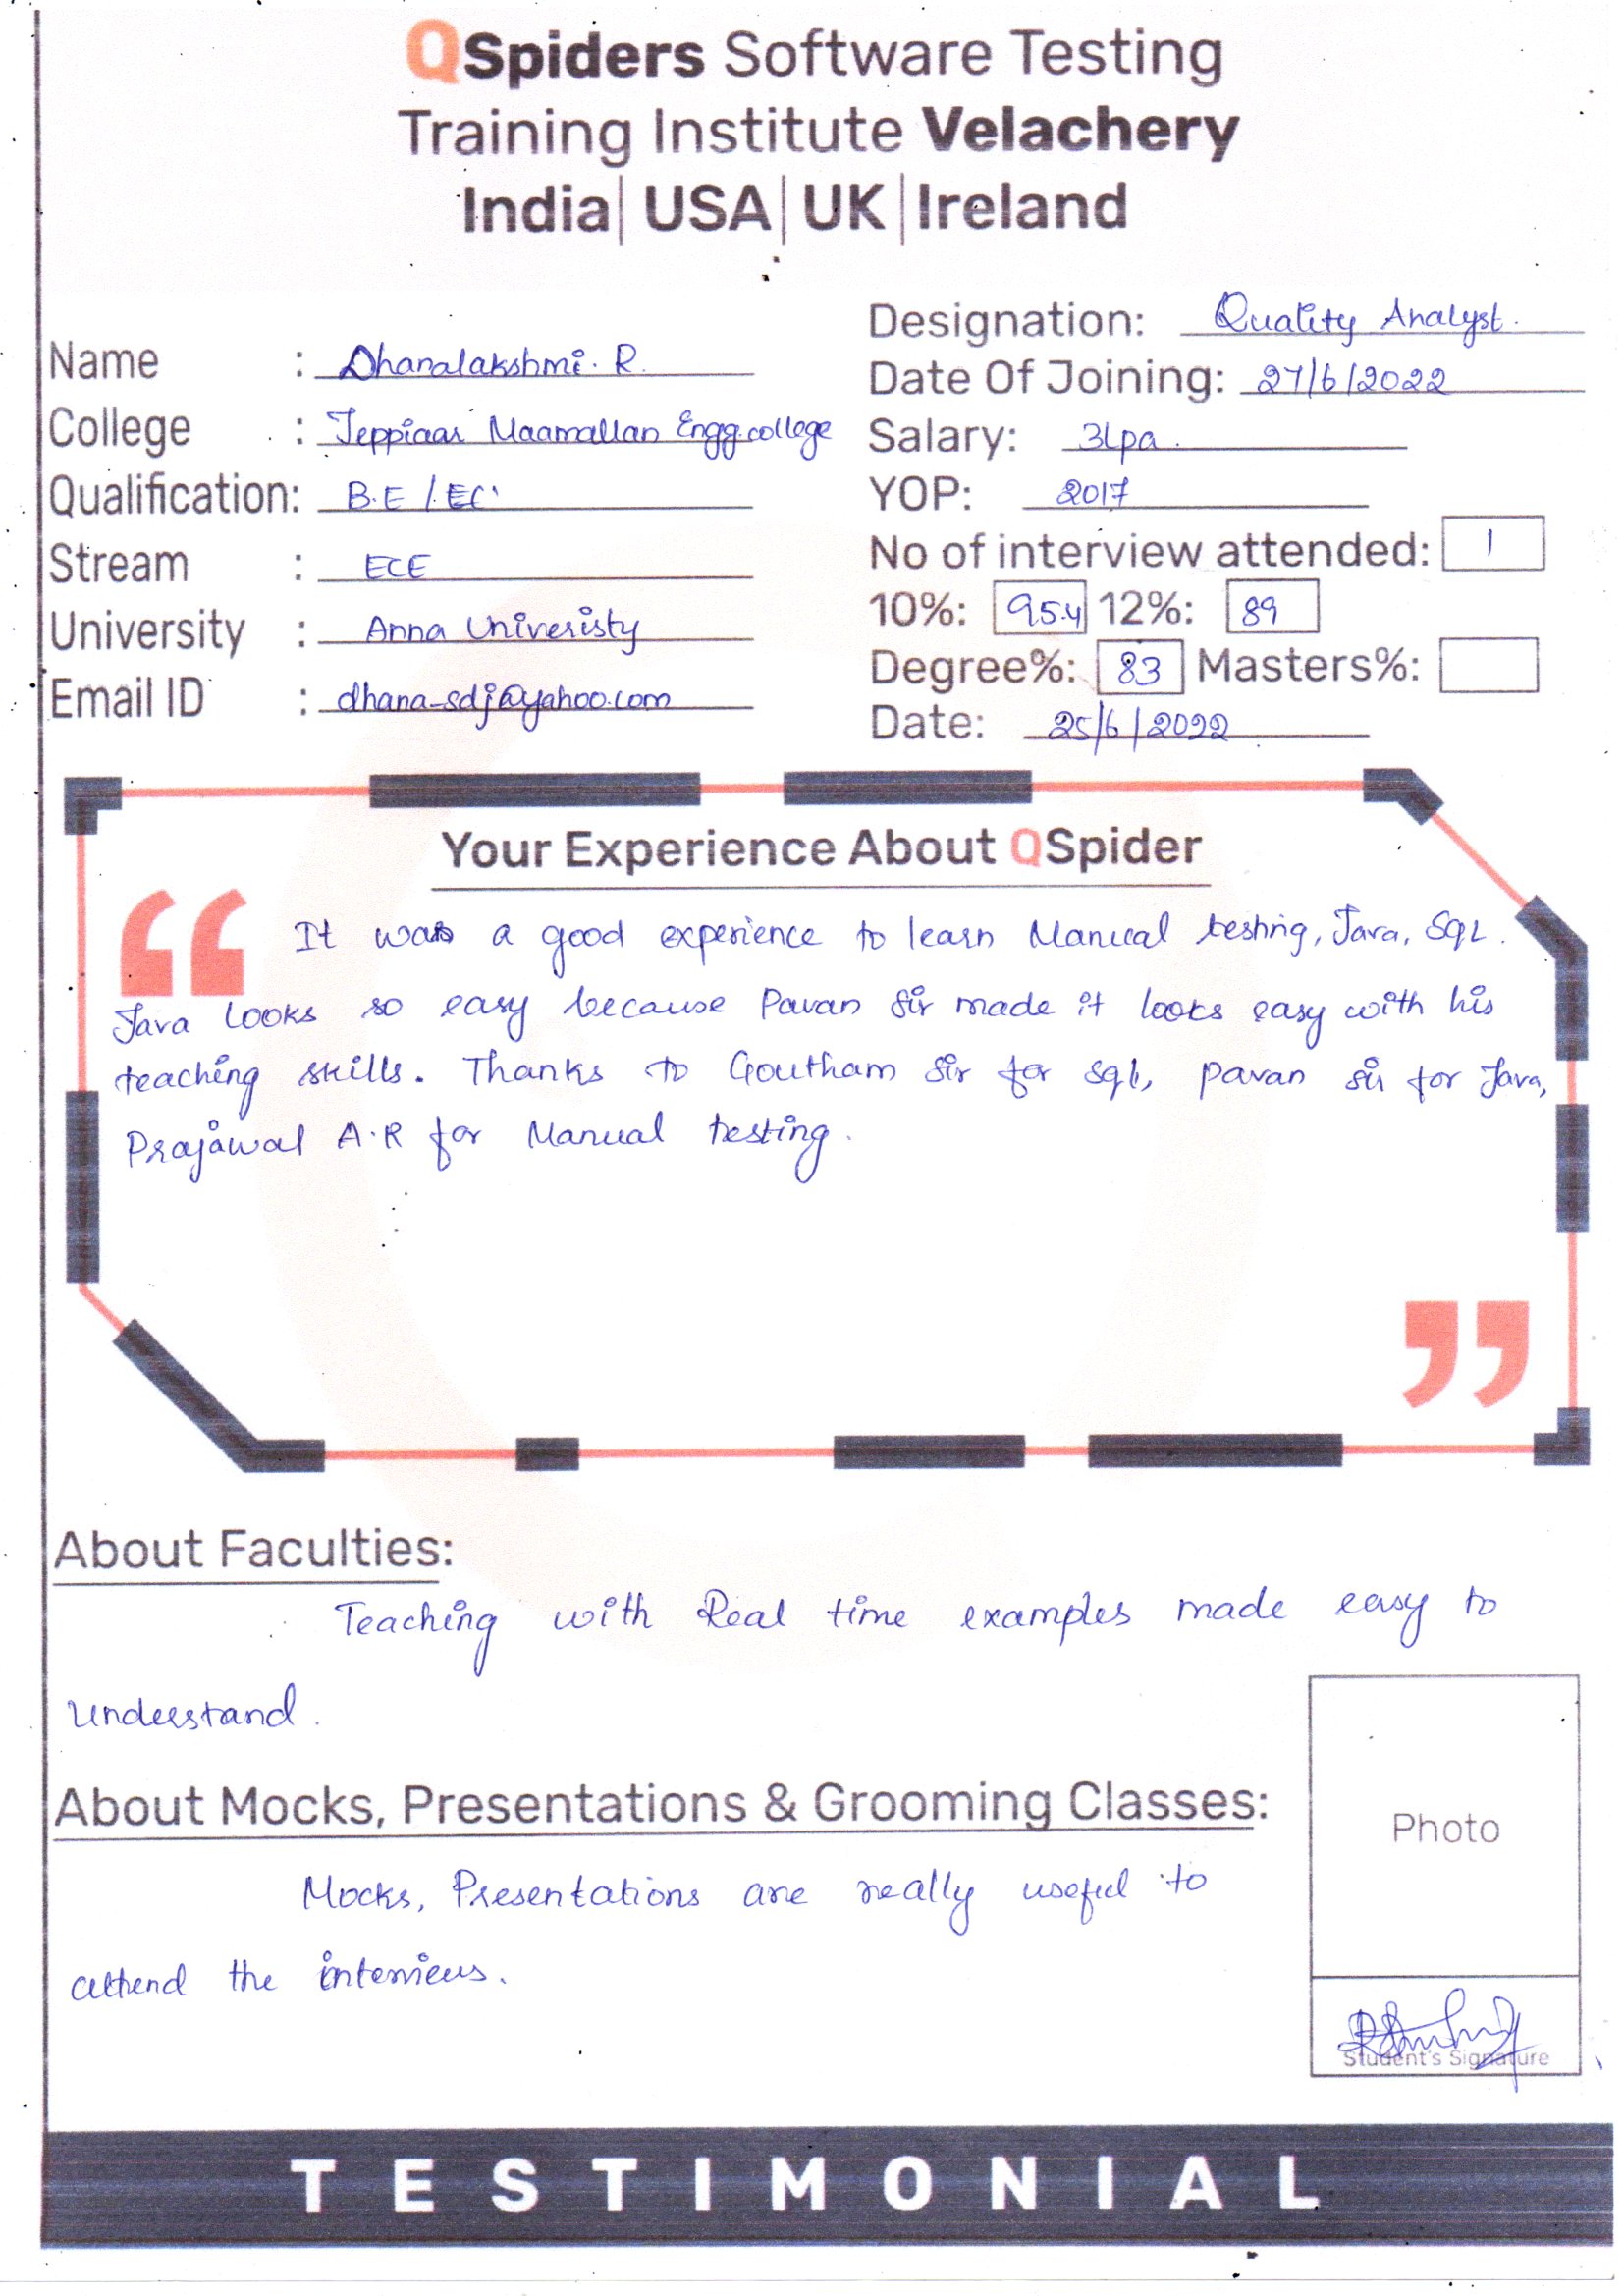 QSpiders Software Testing
Training Institute Velachery
India| USA| UK |Ireland
Name : Dhanalakshmi. R.
College : Jeppiaar Maamallan Engg.college
Qualification: B.E / EC
Stream : ECE
University : Anna Univeristy
Email ID : dhana-sdj@yahoo.com
Designation: Quality Analyst.
Date Of Joining: 27/6/2022
Salary: 3Lpa.
YOP: 2017
No of interview attended: 1
10%: 95.4 12%: 89
Degree%: 83 Masters%:
Date: 25/6/2022
Your Experience About QSpider
“ It was a good experience to learn Manual testing, Java, SQL.
Java looks so easy because Pavan Sir made it looks easy with his
teaching skills. Thanks to Goutham Sir for sql, pavan sir for Java,
Prajawal A.R for Manual testing.
”
About Faculties:
Teaching with Real time examples made easy to
understand.
About Mocks, Presentations & Grooming Classes:
Mocks, Presentations are really useful to
attend the interviews.
Photo
Student's Signature
TESTIMONIAL